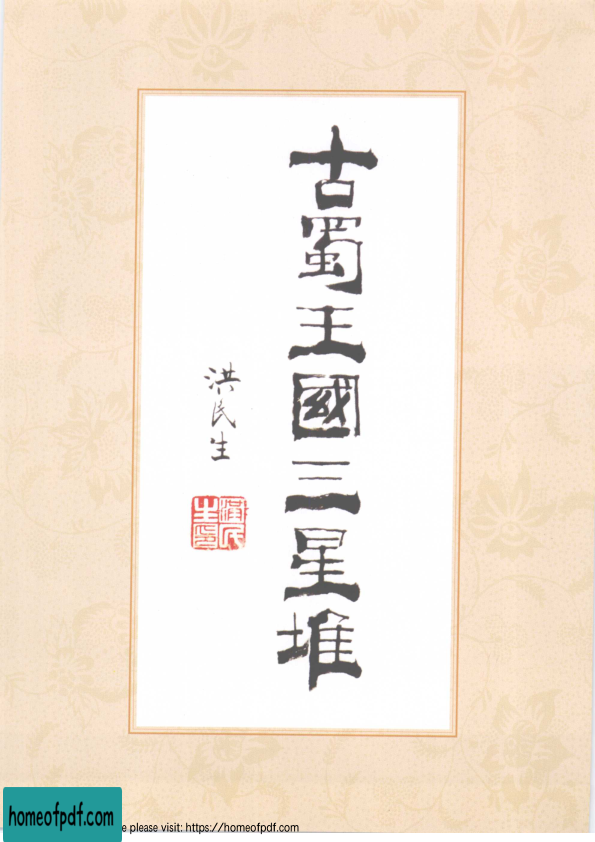 古蜀王國三星堆
洪民生
洪民生印
homeofpdf.com
e please visit: https://homeofpdf.com